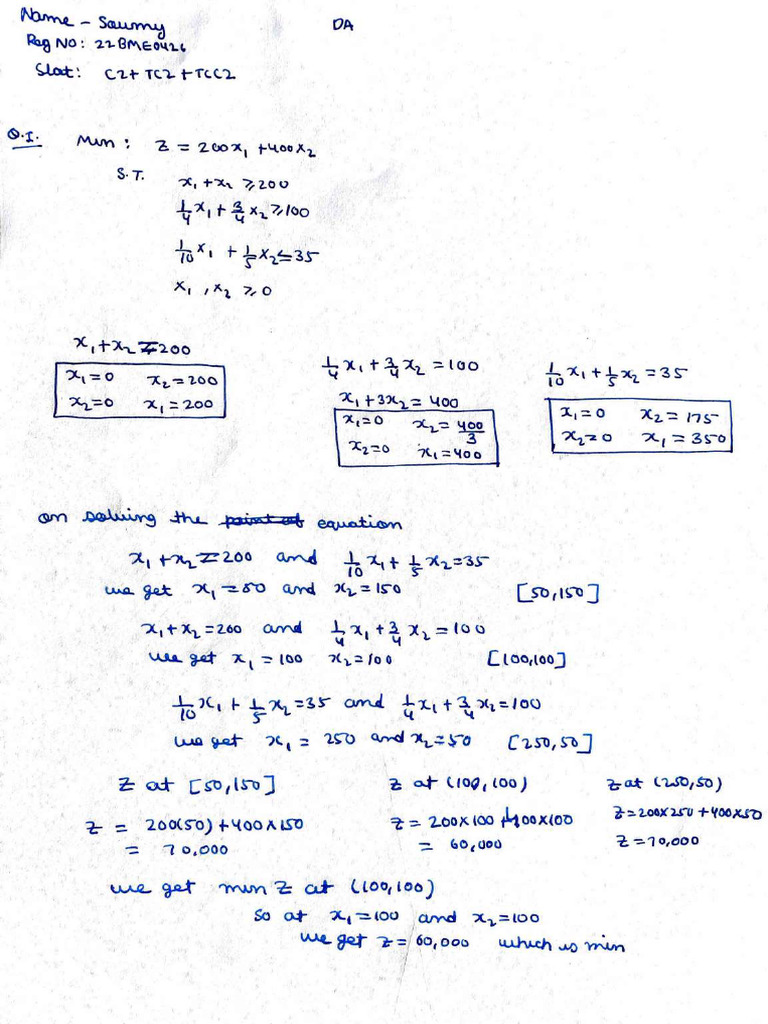 Name - Saumy DA
Reg NO: 22BME0426
Slot: C2+TC2+TCC2
Q.1. Min: Z = 200x₁ + 400x₂
S.T. x₁ + x₂ ≥ 200
1/4 x₁ + 3/4 x₂ ≥ 100
1/10 x₁ + 1/5 x₂ ≤ 35
x₁, x₂ ≥ 0
x₁ + x₂ = 200
x₁ = 0 x₂ = 200
x₂ = 0 x₁ = 200
1/4 x₁ + 3/4 x₂ = 100
x₁ + 3x₂ = 400
x₁ = 0 x₂ = 400/3
x₂ = 0 x₁ = 400
1/10 x₁ + 1/5 x₂ = 35
x₁ = 0 x₂ = 175
x₂ = 0 x₁ = 350
on solving the point of equation
x₁ + x₂ = 200 and 1/10 x₁ + 1/5 x₂ = 35
we get x₁ = 50 and x₂ = 150 [50,150]
x₁ + x₂ = 200 and 1/4 x₁ + 3/4 x₂ = 100
we get x₁ = 100 x₂ = 100 [100,100]
1/10 x₁ + 1/5 x₂ = 35 and 1/4 x₁ + 3/4 x₂ = 100
we get x₁ = 250 and x₂ = 50 [250,50]
Z at [50,150]
Z = 200(50) + 400×150
= 70,000
Z at (100,100)
Z = 200×100 + 400×100
= 60,000
Z at (250,50)
Z = 200×250 + 400×50
Z = 70,000
we get min Z at (100,100)
so at x₁ = 100 and x₂ = 100
we get Z = 60,000 which is min